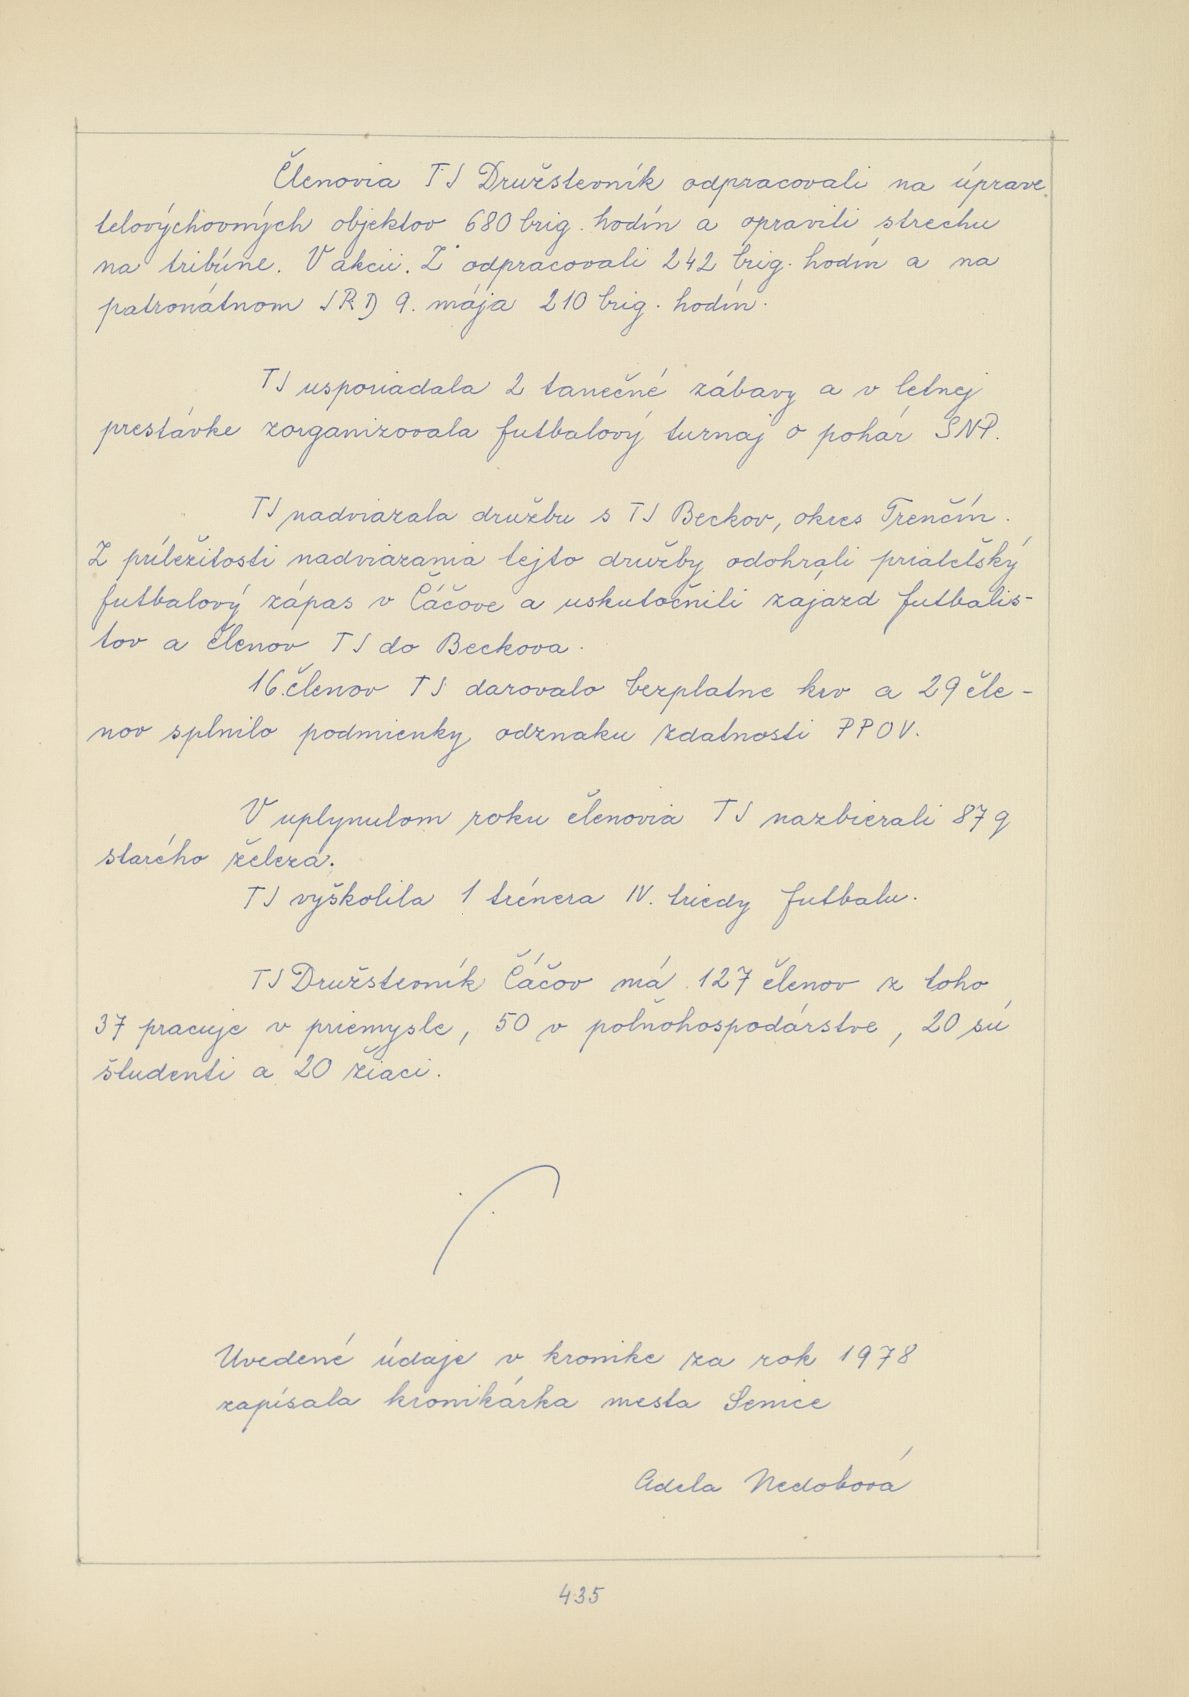 Členovia TJ Družstevník odpracovali na úprave
telovýchovných objektov 680 brig. hodín a opravili strechu
na tribúne. V akcii „Z" odpracovali 242 brig. hodín a na
patronátnom JRD 9. mája 210 brig. hodín.
TJ usporiadala 2 tanečné zábavy a v letnej
prestávke zorganizovala futbalový turnaj o pohár SNP.
TJ nadviazala družbu s TJ Beckov, okres Trenčín.
Z príležitosti nadviazania tejto družby odohrali priateľský
futbalový zápas v Čáčove a uskutočnili zájazd futbalis-
tov a členov TJ do Beckova.
16 členov TJ darovalo bezplatne krv a 29 čle-
nov splnilo podmienky odznaku zdatnosti PPOV.
V uplynulom roku členovia TJ nazbierali 87 q
starého železa.
TJ vyškolila 1 trénera IV. triedy futbalu.
TJ Družstevník Čáčov má 127 členov z toho
37 pracuje v priemysle, 50 v poľnohospodárstve, 20 sú
študenti a 20 žiaci.
Uvedené údaje v kronike za rok 1978
zapísala kronikárka mesta Senice
Adela Nedobová
435